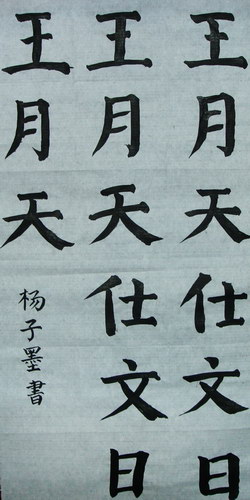 王月天仕文日
王月天仕文日
王月天
杨子墨書